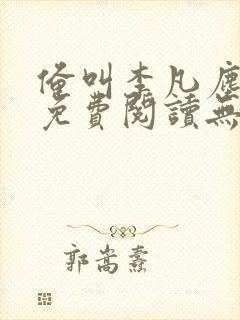 俺叫李凡塵
免費閱讀無
郭嵩燾